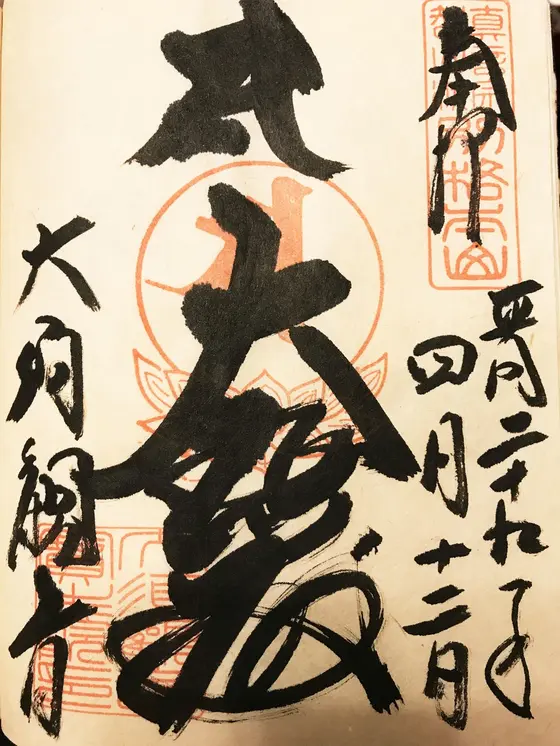 奉拝
平成二十九年
四月十二日
大悲殿
大須観音